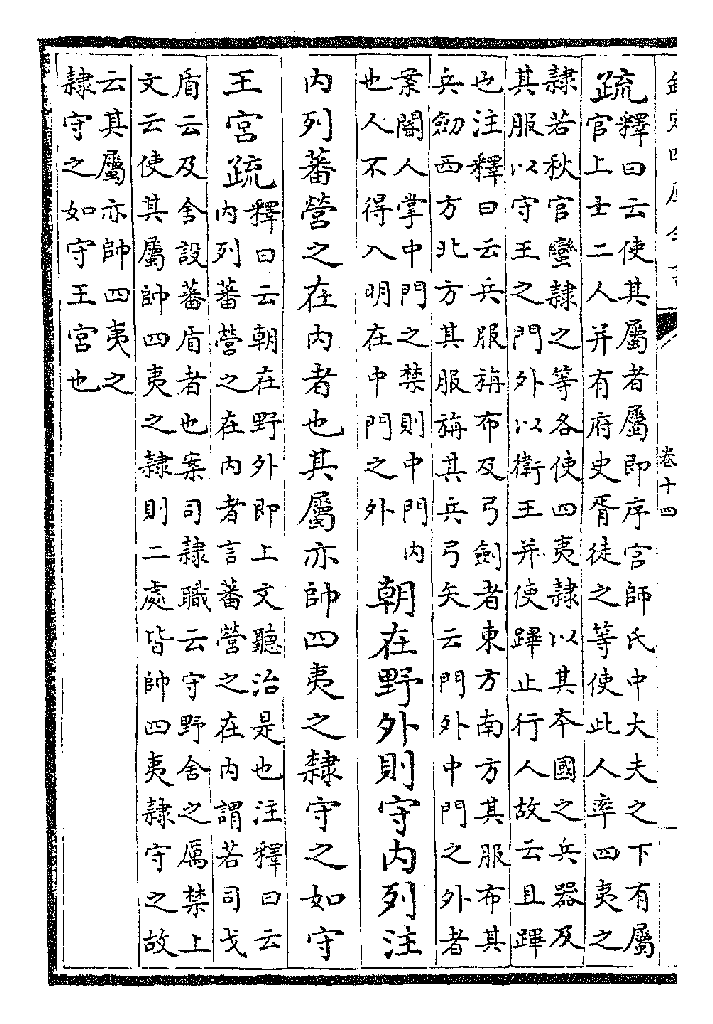 卷十四
疏
釋曰云使其屬者屬即序官師氏中大夫之下有屬
官上士二人并有府史胥徒之等使此人率四夷之
隸若秋官蠻隸之等各使四夷隸以其夲國之兵器及
其服以守王之門外以衛王并使蹕止行人故云且蹕
也注釋曰云兵服旃布及弓劍者東方南方其服布其
兵劒西方北方其服旃其兵弓矢云門外中門之外者
案閽人掌中門之禁則中門内
也人不得入明在中門之外
朝在野外則守内列注
内列蕃營之在内者也其屬亦帥四夷之隸守之如守
王宮疏
釋曰云朝在野外即上文聽治是也注釋曰云
内列蕃營之在内者言蕃營之在内謂若司戈
盾云及舍設蕃盾者也案司隸職云守野舍之厲禁上
文云使其屬帥四夷之隸則二處皆帥四夷隸守之故
云其屬亦帥四夷之
隸守之如守王宮也